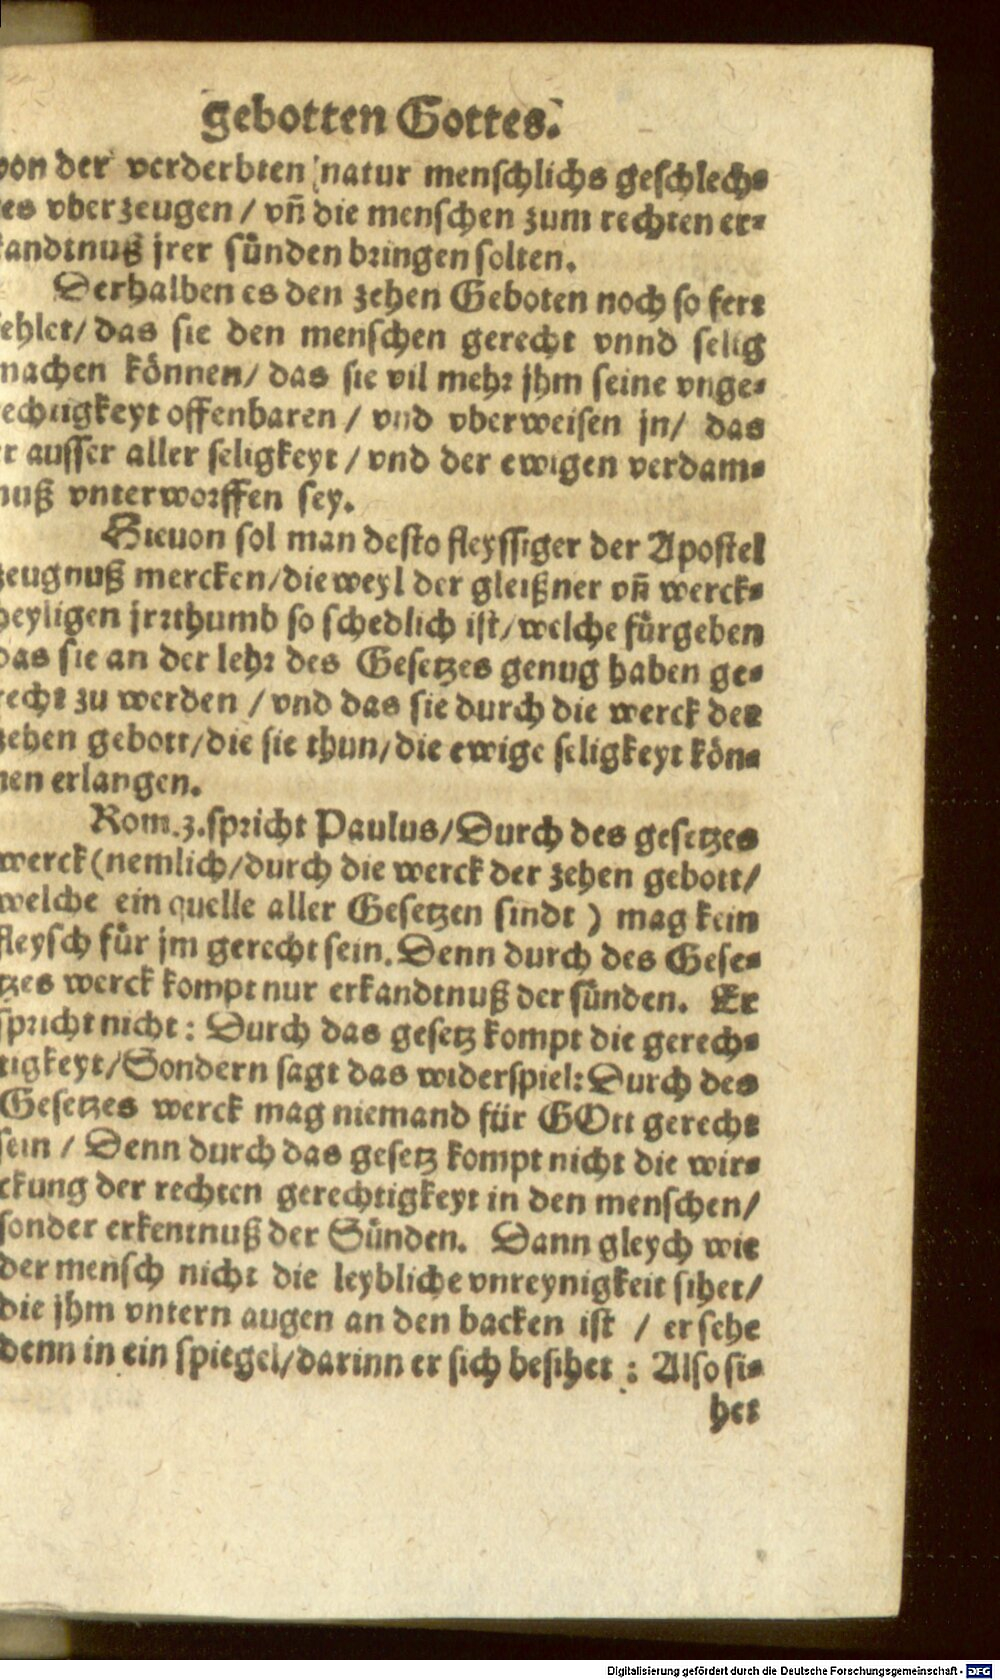 gebotten Gottes.
von der verderbten natur menschlichs geschlech-
tes vberzeugen / vñ die menschen zum rechten er-
kandtnuß jrer sünden bringen solten.
Derhalben es den zehen Geboten noch so fert
fehlet/ das sie den menschen gerecht vnnd selig
machen können/ das sie vil mehr jhm seine vnge-
rechtigkeyt offenbaren / vnd vberweisen jn/ das
er ausser aller seligkeyt / vnd der ewigen verdam-
nuß vnterworffen sey.
Hieuon sol man desto fleyssiger der Apostel
zeugnuß mercken/dieweyl der gleißner vñ werck-
heyligen jrrthumb so schedlich ist/welche fürgeben
das sie an der lehr des Gesetzes genug haben ge-
recht zu werden / vnd das sie durch die werck der
zehen gebott/die sie thun/die ewige seligkeyt kön-
nen erlangen.
Rom.3.spricht Paulus/Durch des gesetzes
werck (nemlich/durch die werck der zehen gebott/
welche ein quelle aller Gesetzen sindt ) mag kein
fleysch für jm gerecht sein. Denn durch des Gese-
tzes werck kompt nur erkandtnuß der sünden. Er
spricht nicht : Durch das gesetz kompt die gerech-
tigkeyt/Sondern sagt das widerspiel: Durch des
Gesetzes werck mag niemand für GOtt gerecht
sein / Denn durch das gesetz kompt nicht die wir-
ckung der rechten gerechtigkeyt in den menschen/
sonder erkentnuß der Sünden. Dann gleych wie
der mensch nicht die leybliche vnreynigkeit sihet/
die jhm vntern augen an den backen ist / er sehe
denn in ein spiegel/darinn er sich besihet : Also si-
het
Digitalisierung gefördert durch die Deutsche Forschungsgemeinschaft - DFG